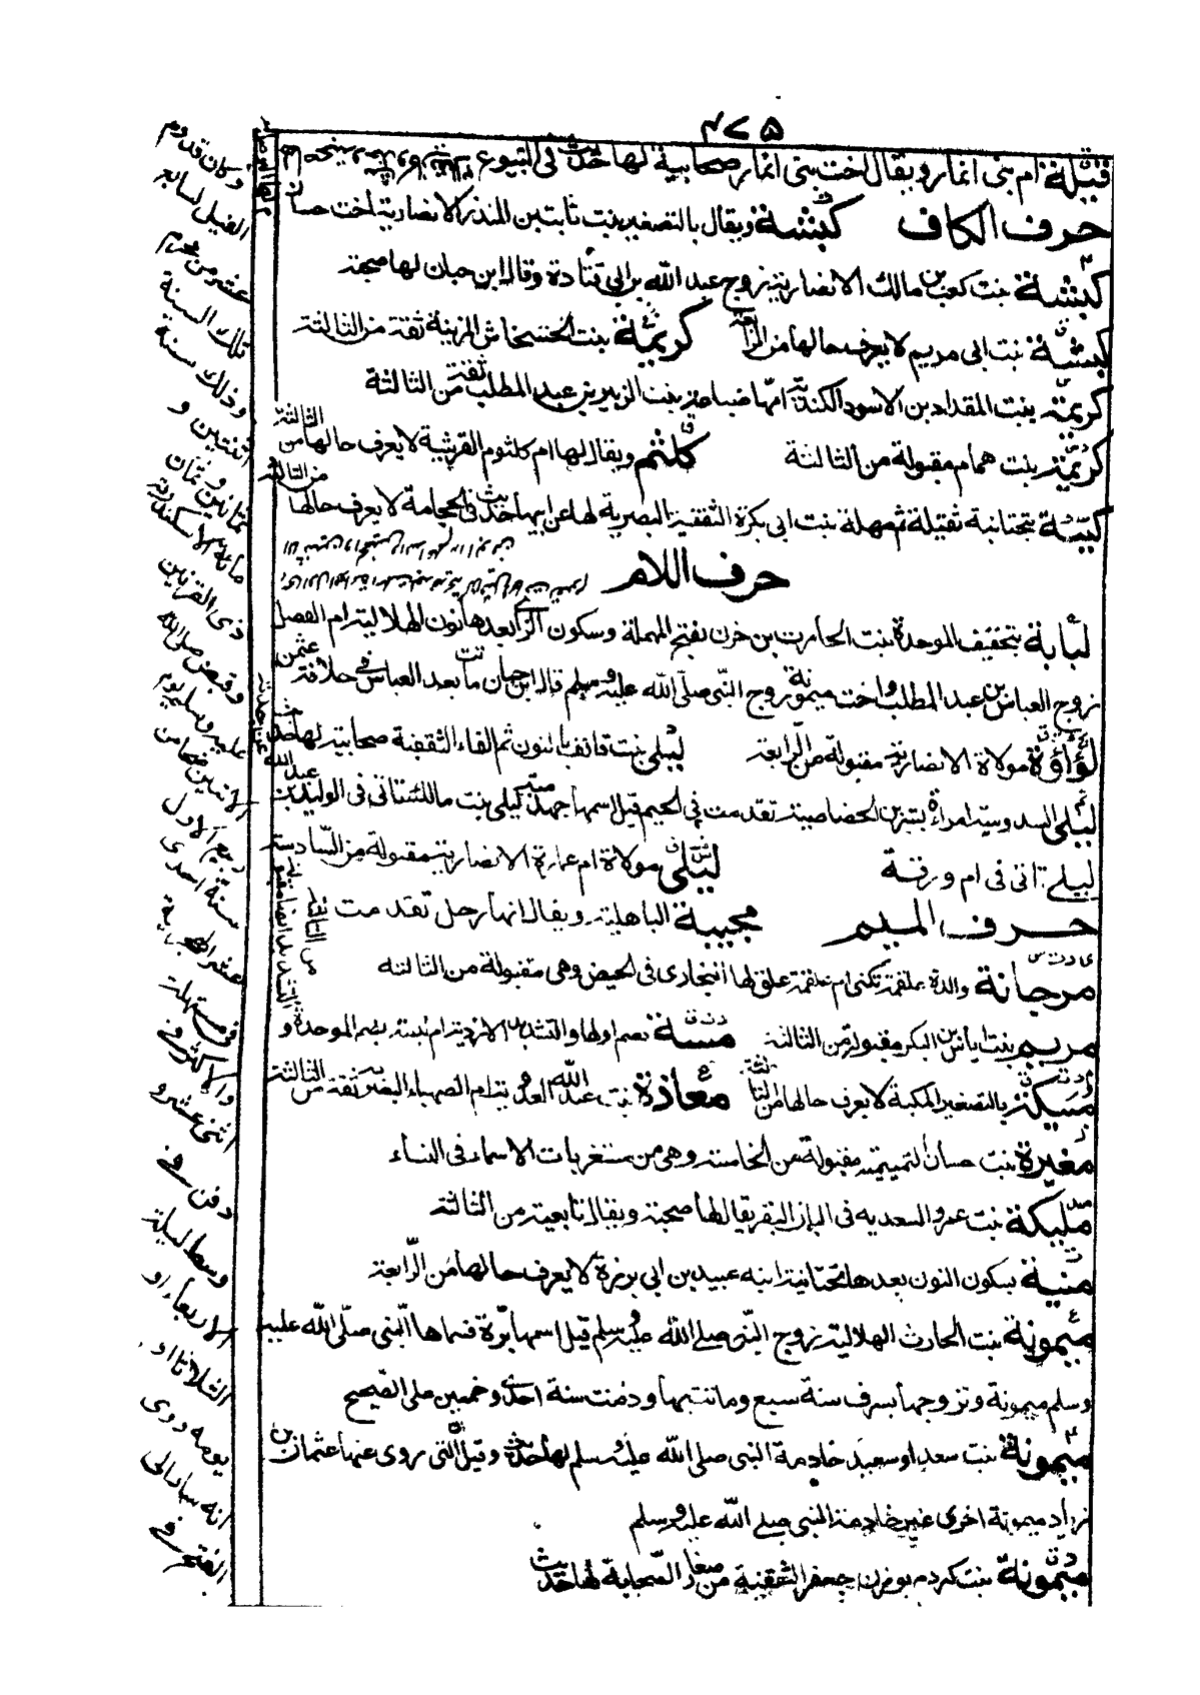 ٤٧٥
قيلة ام بنى انمار ويقال اخت بنى انمار صحابية لها حديث فى البيوع
حرف الكاف كبشة ويقال بالتصغير بنت ثابت بن المنذر الانصارية اخت حسان
كبشة بنت كعب بن مالك الانصارية زوج عبد الله بن ابى قتادة وقال ابن حبان لها صحبة
كبشة بنت ابى مريم لا يعرف حالها من الرابعة كريمة بنت الحسحاس المزنية ثقة من الثالثة
كريمة بنت المقداد بن الاسود الكندية امها ضباعة بنت الزبير بن عبد المطلب ثقة من الثالثة
كريمة بنت همام مقبولة من الثالثة كلثم ويقال لها ام كلثوم القرشية لا يعرف حالها من الثالثة
كيّسة بتحتانية ثقيلة ثم مهملة بنت ابى بكرة الثقفية البصرية لها عن ابيها حديث فى الحجامة لا يعرف حالها من الثالثة
حرف اللام
لبابة بتخفيف الموحدة بنت الحارث بن حزن بفتح المهملة وسكون الزاى بعدها نون الهلالية ام الفضل
زوج العباس بن عبد المطلب واخت ميمونة زوج النبى صلى الله عليه وسلم قال ابن حبان ماتت بعد العباس فى خلافة عثمن
لؤلؤة مولاة الانصارية مقبولة من الرابعة ليلى بنت قانف بنون ثم القاء الثقفية صحابية لها حديث
ليلى السدوسية امرأة بشير بن الخصاصية تقدمت فى الجيم قيل اسمها جهدمة ليلى بنت مالك تأتى فى الوليد بن عبد الله
ليلى تاتى فى ام ورقة ليلى مولاة ام عمارة الانصارية مقبولة من السادسة
حرف الميم مجيبة الباهلية ويقال انها رجل تقدمت
مرجانة والدة علقمة تكنى ام علقمة علق لها البخارى فى الحيض وهى مقبولة من الثالثة
مريم بنت اياس بن البكير مقبولة من الثالثة مسة بضم اولها والتشديد الازدية ام بسة بضم الموحدة و
مسيكة بالتصغير المكية لا يعرف حالها من الثالثة معاذة بنت عبد الله العدوية ام الصهباء البصرية ثقة من الثالثة
مغيرة بنت حسان التميمية مقبولة من الخامسة وهى من مستغربات الاسماء فى النساء
مليكة بنت عمرو السعدية فى البان البقر يقال لها صحبة ويقال تابعية من الثالثة
منية بسكون النون بعدها تحتانية ابنة عبيد بن ابى برزة لا يعرف حالها من الرابعة
ميمونة بنت الحارث الهلالية زوج النبى صلى الله عليه وسلم قيل اسمها برة فسماها النبى صلى الله عليه
وسلم ميمونة وتزوجها بسرف سنة سبع وماتت بها ودفنت سنة احدى وخمسين على الصحيح
ميمونة بنت سعد او سعيد خادمة النبى صلى الله عليه وسلم لها حديث وقيل التى روى عنها عثمان بن
زياد ميمونة اخرى غير خادمة النبى صلى الله عليه وسلم
ميمونة بنت كردم بوزن جعفر الثقفية من صغار الصحابة لها حديث
وكان قدوم
الفيل لسابع
عشر من محرم
تلك السنة
وذلك سنة
اثنتين و
ثمانين وثمان
مائة لاسكندر
ذى القرنين
وقبض صلى الله
عليه وسلم يوم
الاثنين
ربيع الاول
سنة احدى
عشر
والاكثر فى
اثنى عشر و
دفن فى
وسط ليلة
الاربعاء او
الثلاثاء او
يومه وروى